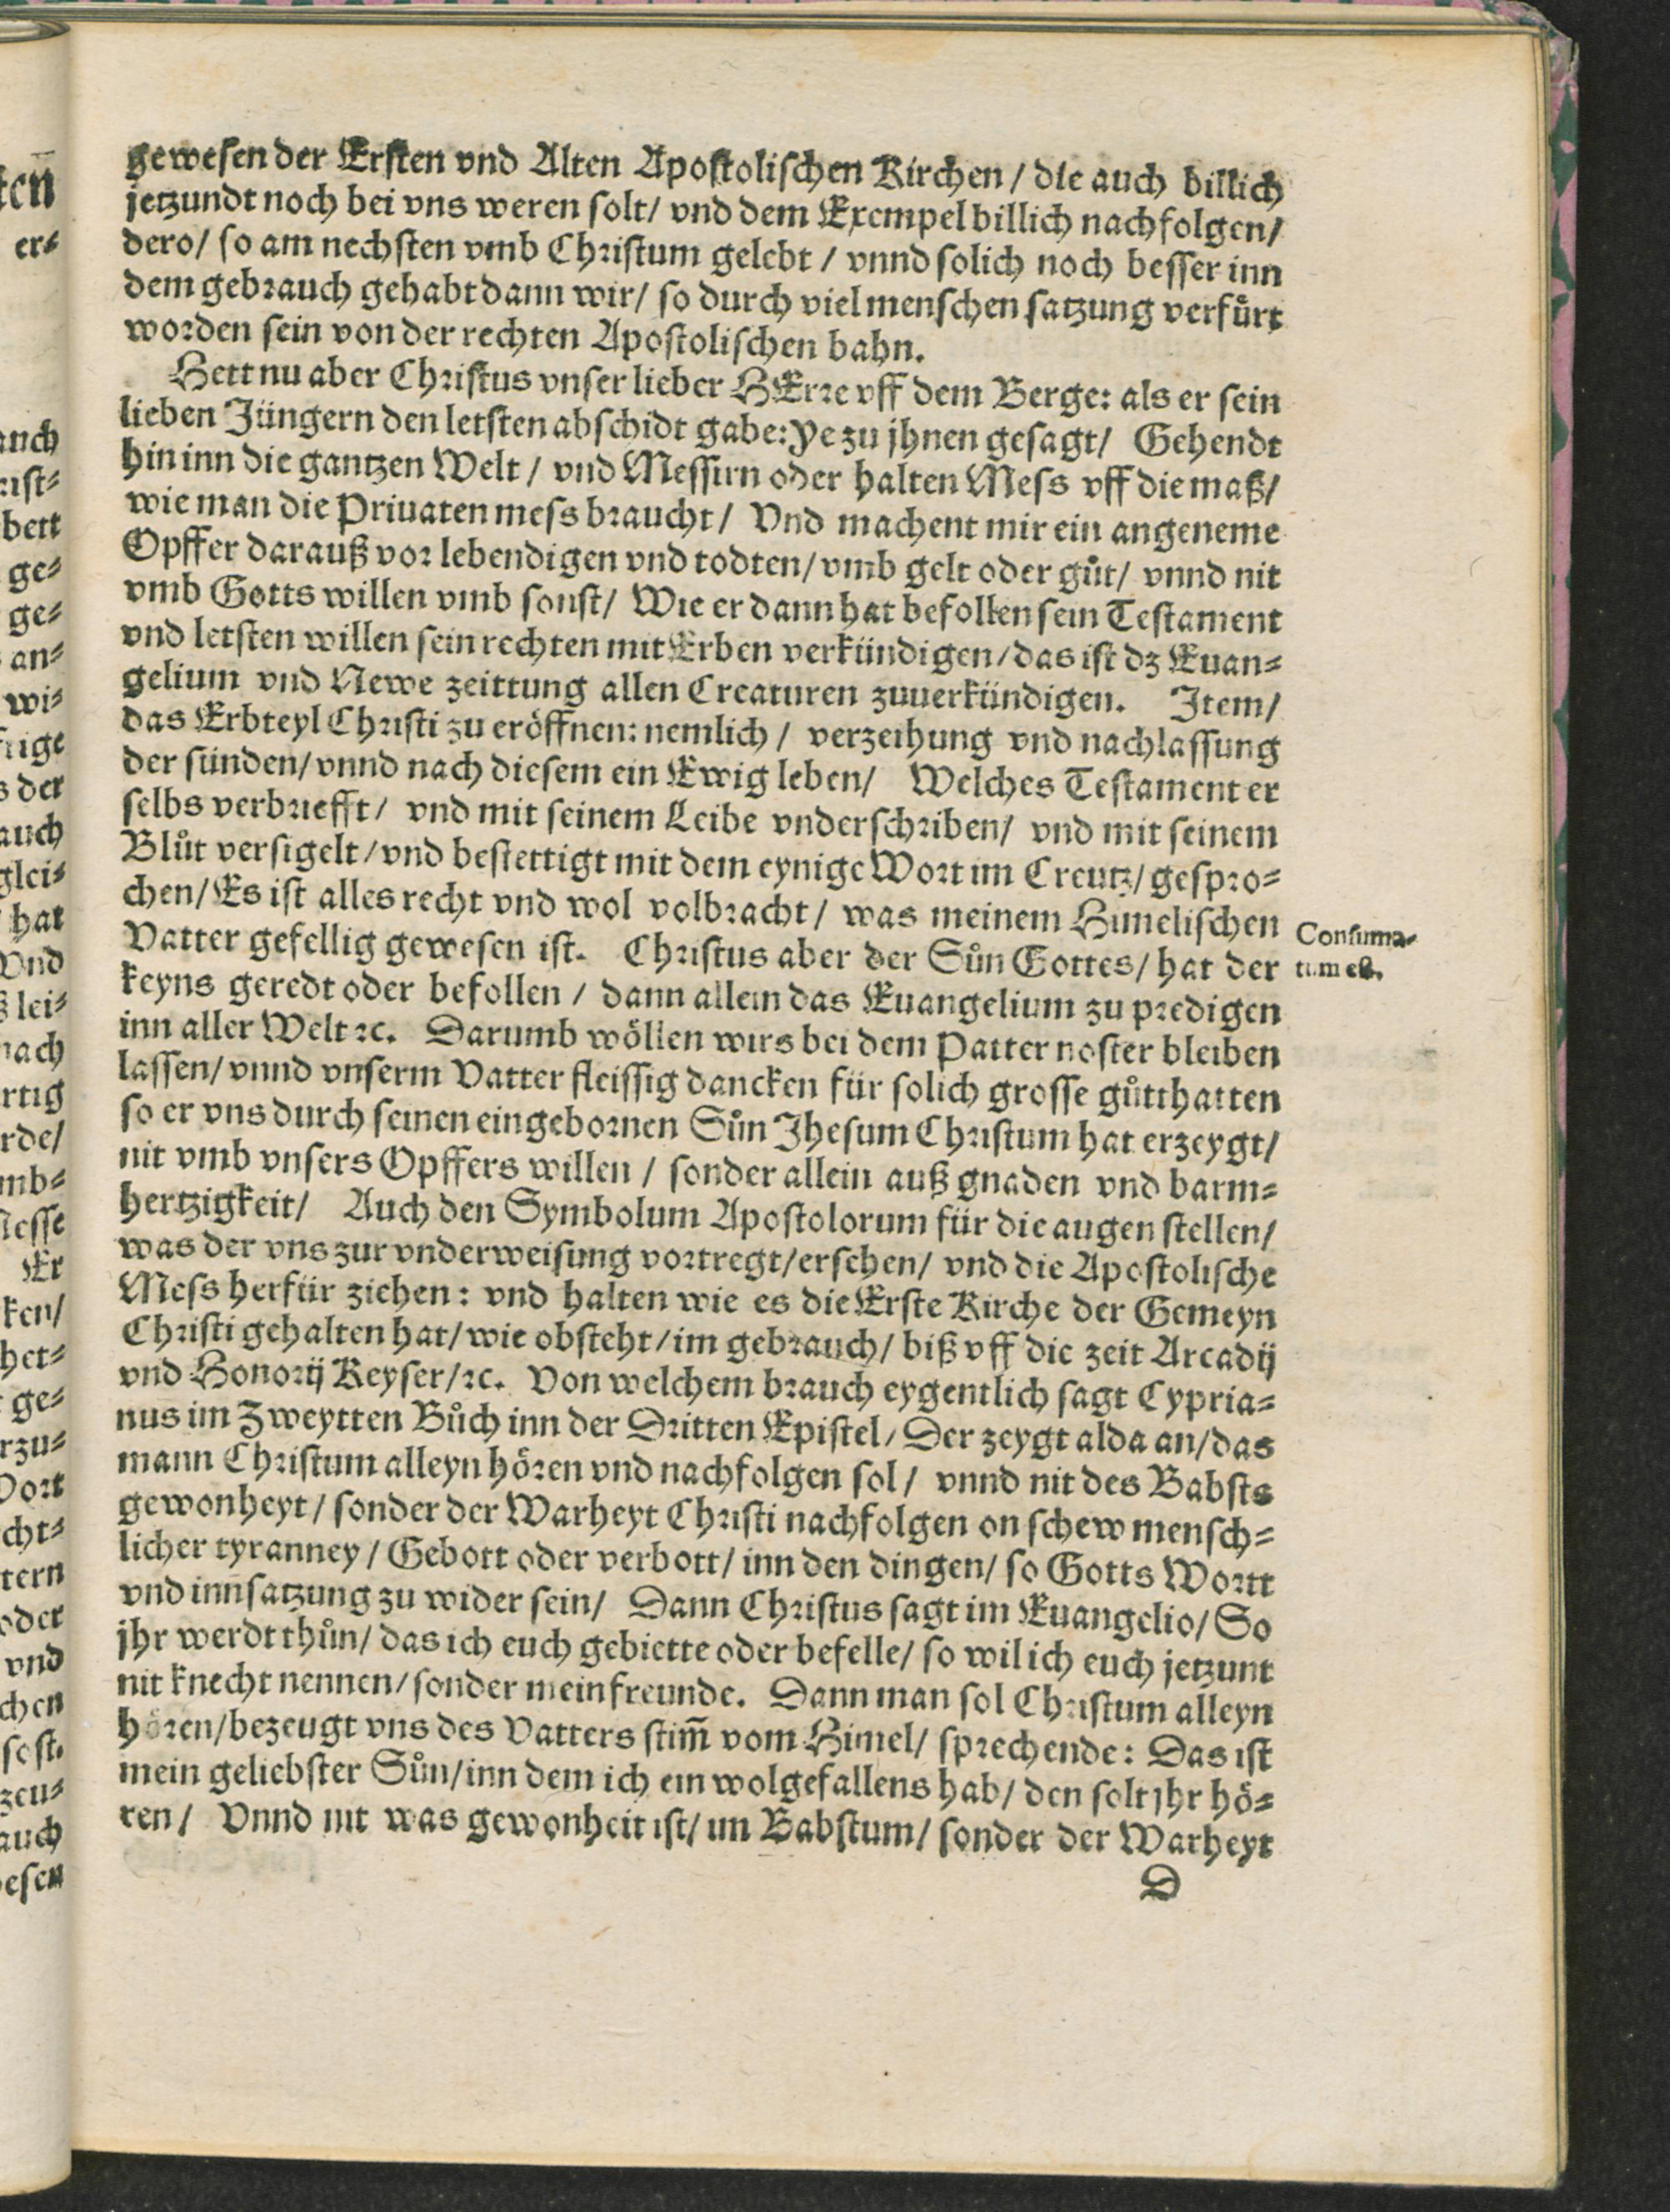 gewesen der Ersten vnd Alten Apostolischen Kirchen / die auch billich
jetzundt noch bei vns weren solt/ vnd dem Exempel billich nachfolgen/
dero/ so am nechsten vmb Christum gelebt / vnnd solich noch besser inn
dem gebrauch gehabt dann wir/ so durch viel menschen satzung verfürt
worden sein von der rechten Apostolischen bahn.
Hett nu aber Christus vnser lieber HErre vff dem Berge: als er sein
lieben Jüngern den letsten abschidt gabe: Ye zu jhnen gesagt/ Gehendt
hin inn die gantzen Welt / vnd Messirn oder halten Mess vff die maß/
wie man die Priuaten mess braucht/ Vnd machent mir ein angeneme
Opffer darauß vor lebendigen vnd todten/ vmb gelt oder gůt/ vnnd nit
vmb Gotts willen vmb sonst/ Wie er dann hat befollen sein Testament
vnd letsten willen sein rechten mit Erben verkündigen/ das ist dz Euan=
gelium vnd Newe zeittung allen Creaturen zuuerkündigen. Item/
das Erbteyl Christi zu eröffnen: nemlich / verzeihung vnd nachlassung
der sünden/ vnnd nach diesem ein Ewig leben/ Welches Testament er
selbs verbriefft/ vnd mit seinem Leibe vnderschriben/ vnd mit seinem
Blůt versigelt/ vnd bestettigt mit dem eynige Wort im Creutz/ gespro=
chen/ Es ist alles recht vnd wol volbracht/ was meinem Himelischen
Vatter gefellig gewesen ist. Christus aber der Sůn Gottes/ hat der
keyns geredt oder befollen / dann allein das Euangelium zu predigen
inn aller Welt ꝛc. Darumb wöllen wirs bei dem Patter noster bleiben
lassen/ vnnd vnserm Vatter fleissig dancken für solich grosse gůtthatten
so er vns durch seinen eingebornen Sůn Jhesum Christum hat erzeygt/
nit vmb vnsers Opffers willen / sonder allein auß gnaden vnd barm=
hertzigkeit/ Auch den Symbolum Apostolorum für die augen stellen/
was der vns zur vnderweisung vortregt/ ersehen/ vnd die Apostolische
Mess herfür ziehen: vnd halten wie es die Erste Kirche der Gemeyn
Christi gehalten hat/ wie obsteht/ im gebrauch/ biß vff die zeit Arcadij
vnd Honorij Keyser/ꝛc. Von welchem brauch eygentlich sagt Cypria=
nus im Zweytten Bůch inn der Dritten Epistel/ Der zeygt alda an/ das
mann Christum alleyn hören vnd nachfolgen sol/ vnnd nit des Babsts
gewonheyt/ sonder der Warheyt Christi nachfolgen on schew mensch=
licher tyranney / Gebott oder verbott/ inn den dingen/ so Gotts Wortt
vnd innsatzung zu wider sein/ Dann Christus sagt im Euangelio/ So
jhr werdt thůn/ das ich euch gebiette oder befelle/ so wil ich euch jetzunt
nit knecht nennen/ sonder mein freunde. Dann man sol Christum alleyn
hören/ bezeugt vns des Vatters stim̄ vom Himel/ sprechende: Das ist
mein geliebster Sůn/ inn dem ich ein wolgefallens hab/ den solt jhr hö=
ren/ Vnnd nit was gewonheit ist/ im Babstum/ sonder der Warheyt
D
Consuma-
tum est.